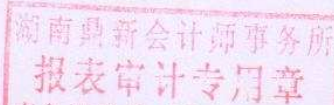 湖南鼎新会计师事务所
报表审计专用章